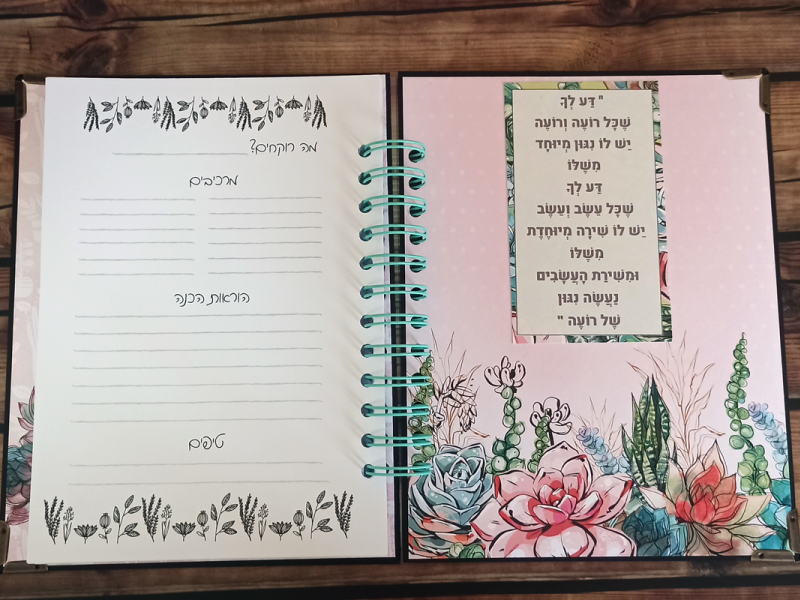 " דַּע לְךָ
שֶׁכָּל רוֹעֶה וְרוֹעֶה
יֵשׁ לוֹ נִגּוּן מְיוּחָד
מִשֶּׁלּוֹ
דַּע לְךָ
שֶׁכָּל עֵשֶׂב וְעֵשֶׂב
יֵשׁ לוֹ שִׁירָה מְיוּחֶדֶת
מִשֶּׁלּוֹ
וּמִשִּׁירַת הָעֲשָׂבִים
נַעֲשֶׂה נִגּוּן
שֶׁל רוֹעֶה "
מה רוקחים?
מרכיבים
הוראות הכנה
טיפים